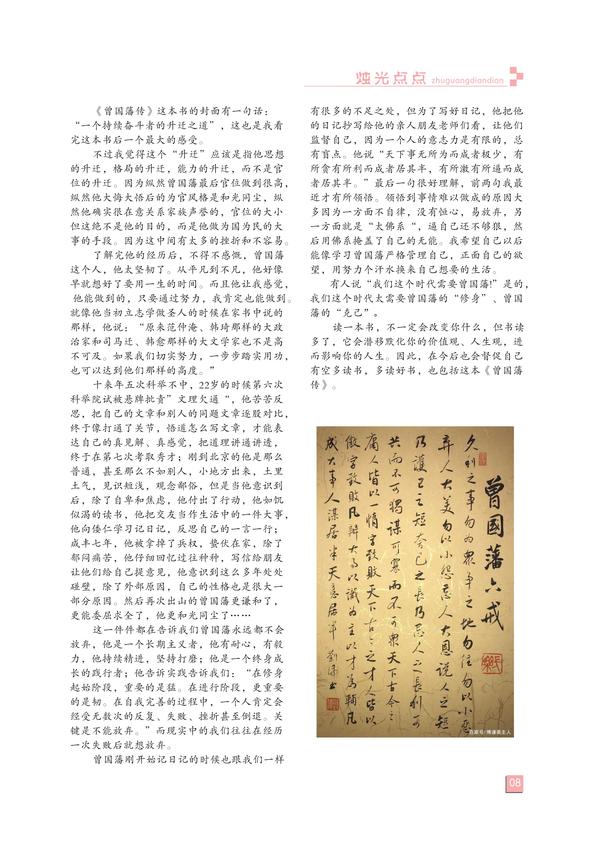 烛光点点 zhuguangdiandian
《曾国藩传》这本书的封面有一句话：
“一个持续奋斗者的升迁之道”，这也是我看
完这本书后一个最大的感受。
不过我觉得这个“升迁”应该是指他思想
的升迁，格局的升迁，能力的升迁，而不是官
位的升迁。因为纵然曾国藩最后官位做到很高，
纵然他大悔大悟后的为官风格是和光同尘，纵
然他确实很在意关系家族声誉的，官位的大小
但这绝不是他的目的，而是他做为国为民的大
事的手段。因为这中间有太多的挫折和不容易。
了解完他的经历后，不得不感慨，曾国藩
这个人，他太坚韧了。从平凡到不凡，他好像
早就想好了要用一生的时间。而且他让我感觉，
他能做到的，只要通过努力，我肯定也能做到。
就像他当初立志学做圣人的时候在家书中说的
那样，他说：“原来范仲淹、韩琦那样的大政
治家和司马迁、韩愈那样的大文学家也不是高
不可及。如果我们切实努力，一步步踏实用功，
也可以达到他们那样的高度。”
十来年五次科举不中，22岁的时候第六次
科举院试被悬牌批责”文理欠通“，他苦苦反
思，把自己的文章和别人的问题文章逐股对比，
终于像打通了关节，悟道怎么写文章，才能表
达自己的真见解、真感觉，把道理讲通讲透，
终于在第七次考取秀才；刚到北京的他是那么
普通，甚至那么不如别人，小地方出来，土里
土气，见识短浅，观念鄙俗，但是当他意识到
后，除了自卑和焦虑，他付出了行动，他如饥
似渴的读书，他把交友当作生活中的一件大事，
他向倭仁学习记日记，反思自己的一言一行；
咸丰七年，他被拿掉了兵权，蛰伏在家，除了
郁闷痛苦，他仔细回忆过往种种，写信给朋友
让他们给自己提意见，他意识到这么多年处处
碰壁，除了外部原因，自己的性格也是很大一
部分原因。然后再次出山的曾国藩更谦和了，
更能委屈求全了，他更和光同尘了……
这一件件都在告诉我们曾国藩永远都不会
放弃，他是一个长期主义者，他有耐心，有毅
力，他持续精进，坚持打磨；他是一个终身成
长的践行者；他告诉实践告诉我们：“在修身
起始阶段，重要的是猛。在进行阶段，更重要
的是韧。在自我完善的过程中，一个人肯定会
经受无数次的反复、失败、挫折甚至倒退。关
键是不能放弃。”而现实中的我们往往在经历
一次失败后就想放弃。
曾国藩刚开始记日记的时候也跟我们一样
有很多的不足之处，但为了写好日记，他把他
的日记抄写给他的亲人朋友老师们看，让他们
监督自己，因为一个人的意志力是有限的，总
有盲点。他说“天下事无所为而成者极少，有
所贪有所利而成者居其半，有所激有所逼而成
者居其半。”最后一句很好理解，前两句我最
近才有所领悟。领悟到事情难以做成的原因大
多因为一方面不自律，没有恒心，易放弃，另
一方面就是“太佛系“，逼自己还不够狠，然
后用佛系掩盖了自己的无能。我希望自己以后
能像学习曾国藩严格管理自己，正面自己的欲
望，用努力个汗水换来自己想要的生活。
有人说“我们这个时代需要曾国藩!”是的，
我们这个时代太需要曾国藩的“修身”、曾国
藩的“克己”。
读一本书，不一定会改变你什么，但书读
多了，它会潜移默化你的价值观、人生观，进
而影响你的人生。因此，在今后也会督促自己
有空多读书，多读好书，也包括这本《曾国藩
传》。
曾国藩六戒
久利之事勿为众争之地勿往勿以小恶
弃人大美勿以小怨忘人大恩说人之短
乃护己之短夸己之长乃忌人之长利可
共而不可独谋可寡而不可众天下古今之
庸人皆以一惰字致败天下古今之才人皆以
傲字致败凡办大事以识为主以才为辅凡
成大事人谋居半天意居半
08